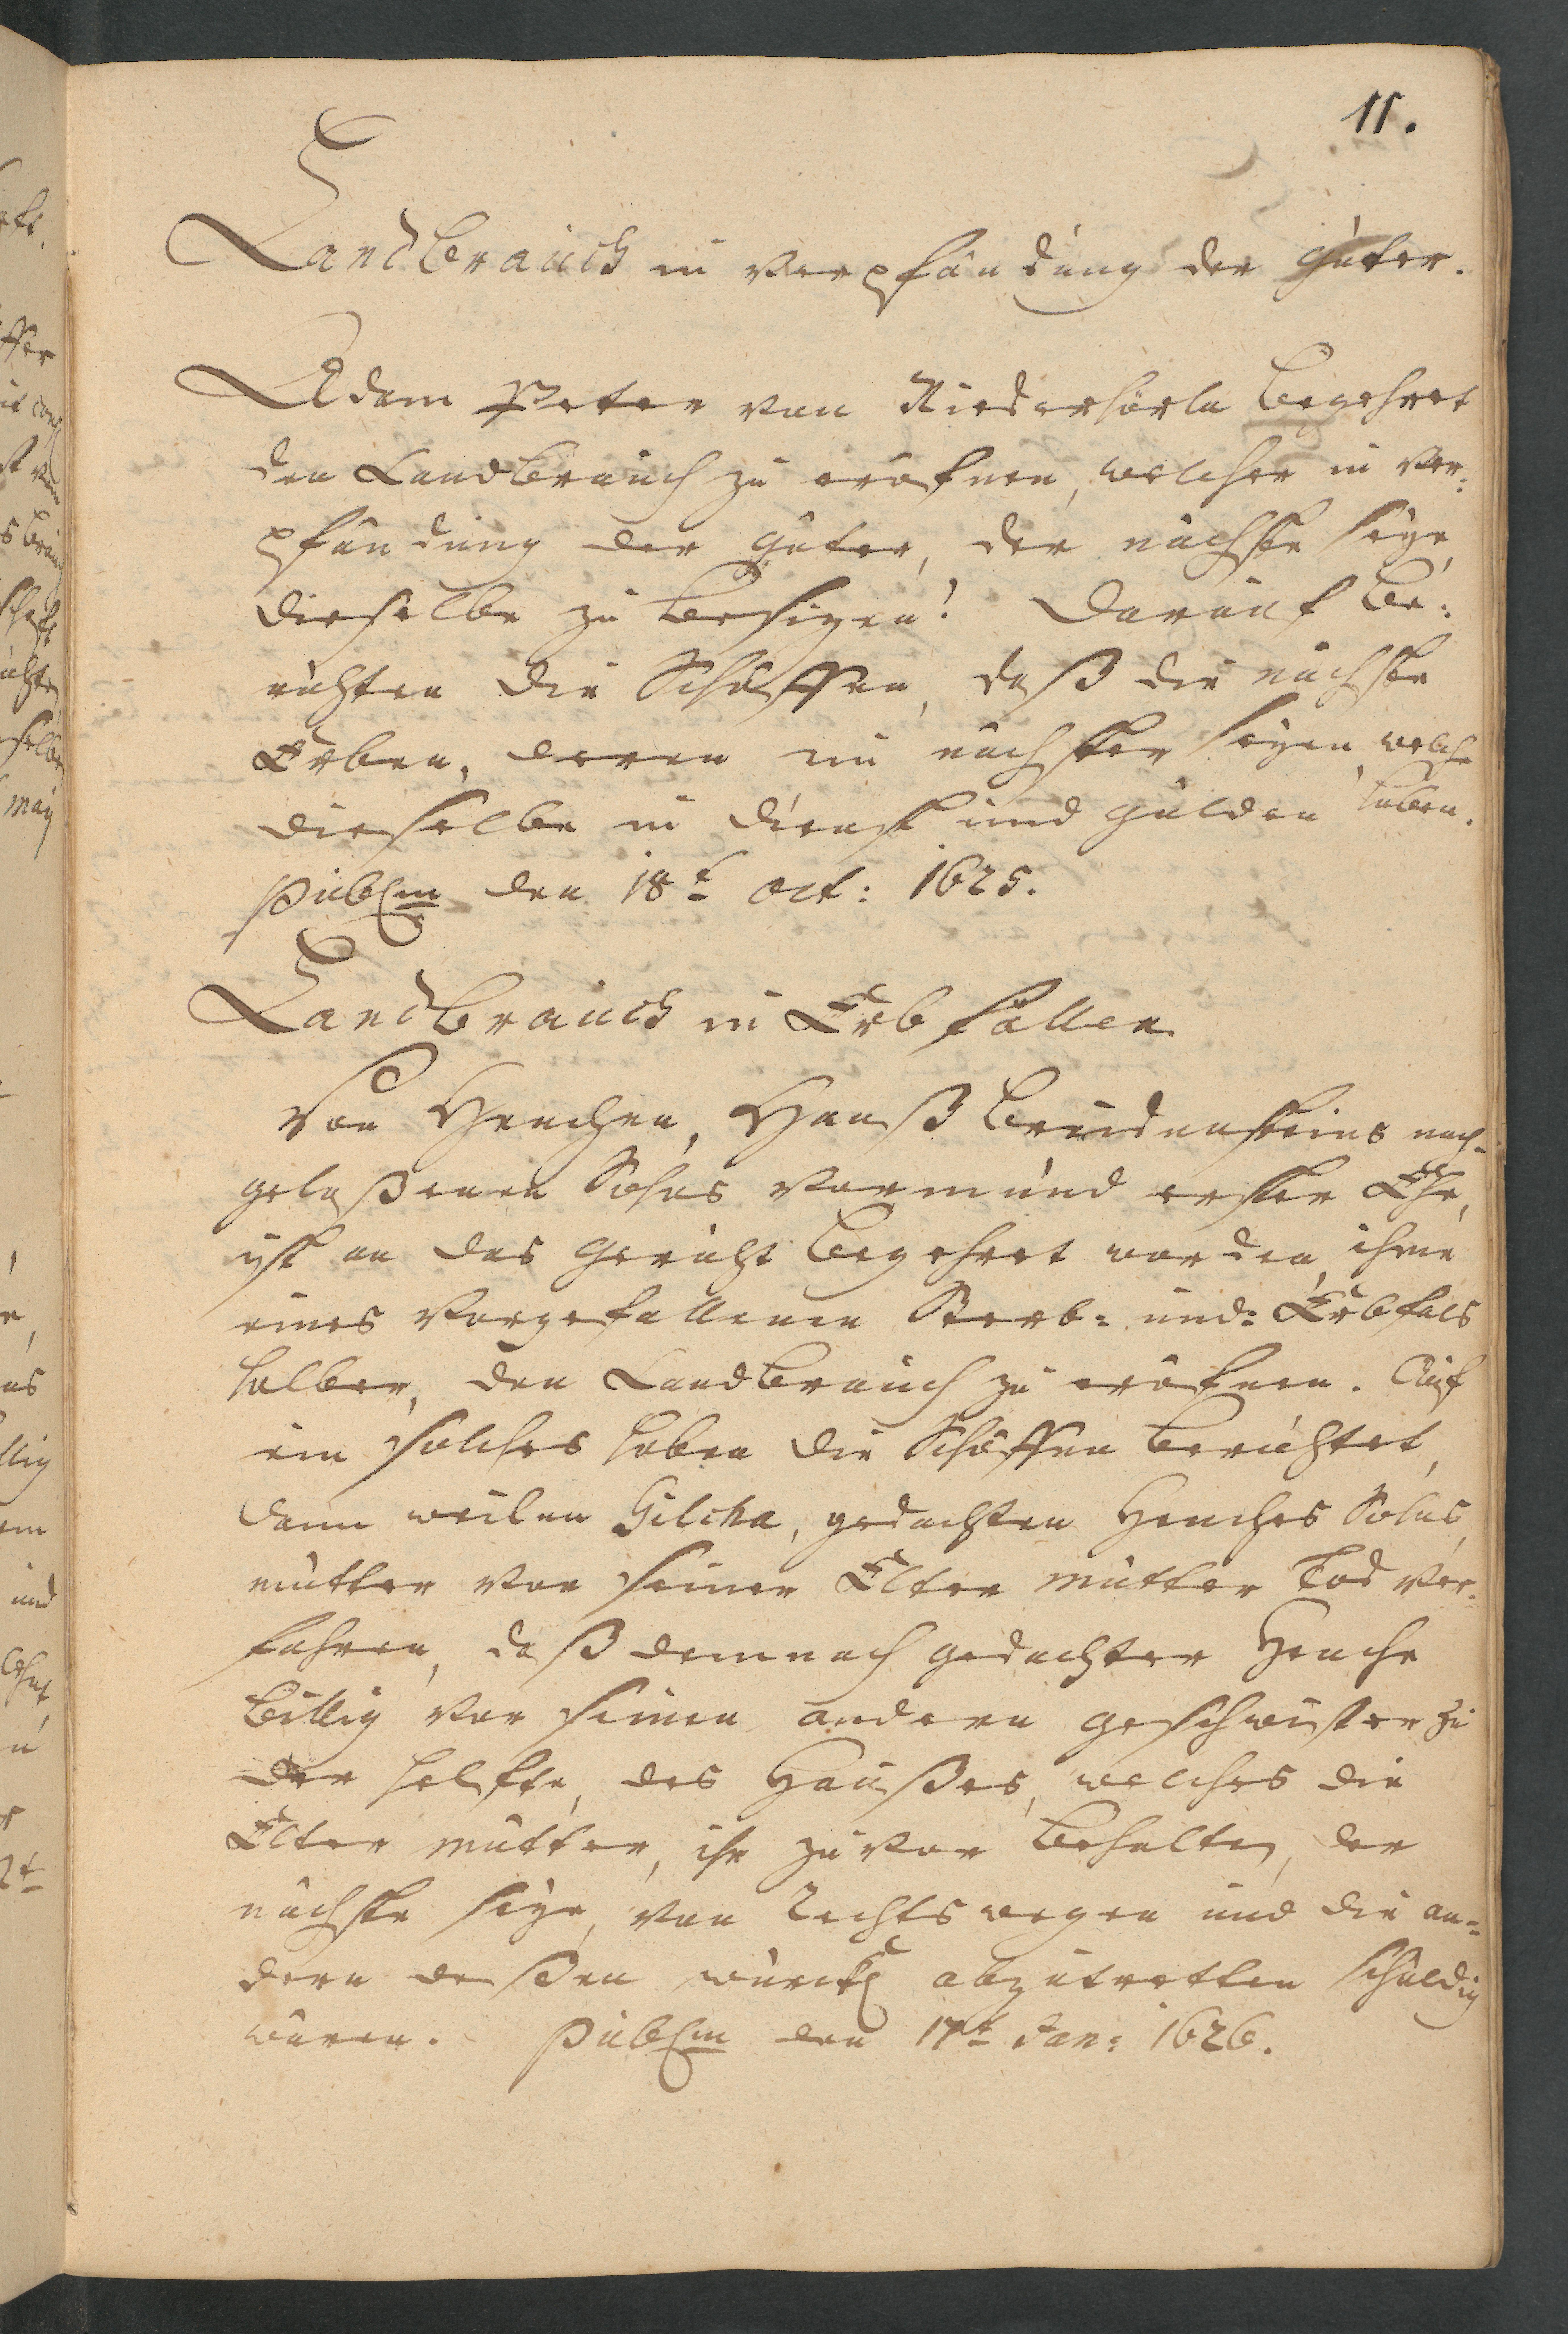 11.
Landbrauch in Verpfändung der Güter.
Adam Peter von Niederhörla begehret
den Landbrauch zu eröfnen, welcher in Ver:
pfändung der Güter, der nächste seye,
dieselbe zu besizen? Darauf be:
richten die Schöffen, daß die nächste
Erben, deren im nächster seyen, welche
dieselbe in Dienst und Gülden haben.
Publm den 18t Oct: 1625.
Landbrauch in Erbfällen
Von Henchen, Hanß Breidensteins nach-
gelaßenen Sohns Vormund erster Ehe,
ist an das Gericht begehret worden, ihme
eines Vorgefallenen Sterb- und- Erbfals
halber, den Landbrauch zu eröfnen. Auf
ein solches haben die Schöffen berichtet,
dann weilen Gilcha, gedachten Henches Sohns,
mutter vor seiner Elter mutter Tod Ver-
fahren, daß demnach gedachter Henche
billig vor seinen andern geschwister zu
der helfte, des Haußes, welches die
Elter mutter, ihr zuvor behalten, der
nächste seye, von Rechts wegen und die an-
dern deßen würckl abzutretten schuldig
wären. Publm den 17t Jan: 1626.